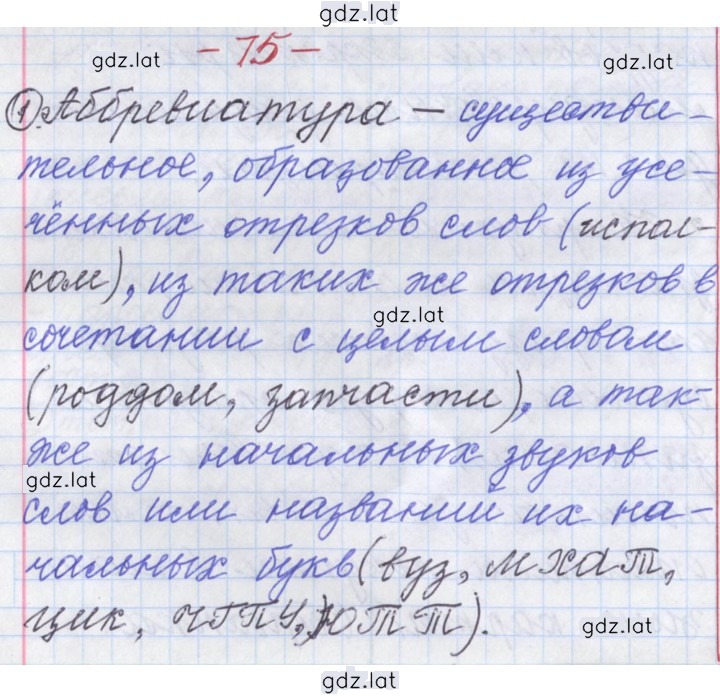 gdz.lat
- 75 -
gdz.lat
gdz.lat
1. Аббревиатура – существи-
тельное, образованное из усе-
чённых отрезков слов (испол-
ком), из таких же отрезков в
gdz.lat
сочетании с целым словом
(роддом, запчасти), а так-
же из начальных звуков
gdz.lat
слов или названий их на-
чальных букв (вуз, МХАТ,
ЦИК, ЧГПУ, ЮТТ).
gdz.lat
gdz.lat